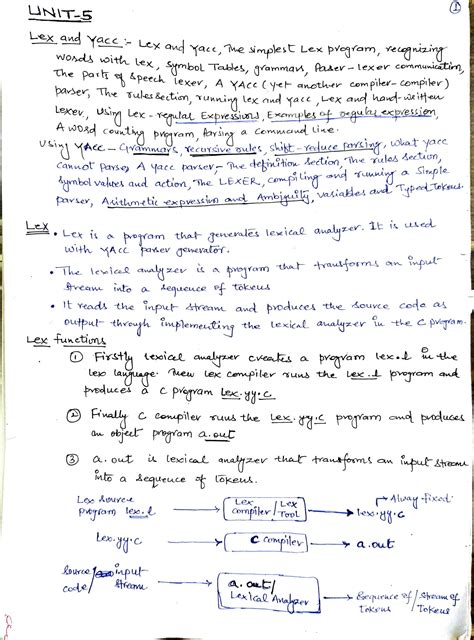 UNIT-5
①
Lex and Yacc :- Lex and Yacc, The simplest Lex program, recognizing
words with lex, symbol Tables, grammars, Parser-lexer communication,
The parts of speech lexer, A YACC (yet another compiler-compiler)
parser, The rules section, running lex and yacc, Lex and hand-written
lexer, Using Lex - regular Expressions, Examples of regular expression,
A word counting program, Parsing a Command line.
Using YACC - Grammars, recursive rules, shift-reduce parsing, what yacc
cannot parse, A yacc parser - The definition section, The rules section,
symbol values and action, The LEXER, compiling and running a simple
parser, Arithmetic expression and Ambiguity, variables and Typed Tokens.
Lex • Lex is a program that generates lexical analyzer. It is used
with YACC parser generator.
• The lexical analyzer is a program that transforms an input
stream into a sequence of tokens
• It reads the input stream and produces the source code as
output through implementing the lexical analyzer in the C program.
Lex functions
① Firstly lexical analyzer creates a program lex.l in the
lex language. Then lex compiler runs the lex.l program and
produces a C program lex.yy.c
② Finally C compiler runs the lex.yy.c program and produces
an object program a.out
③ a.out is lexical analyzer that transforms an input stream
into a sequence of tokens.
Lex source program lex.l → Lex compiler / Lex Tool → lex.yy.c → Alway fixed
Lex.yy.c → C compiler → a.out
source code / input stream → a.out / Lexical Analyzer → Sequence of Tokens / Stream of Tokens